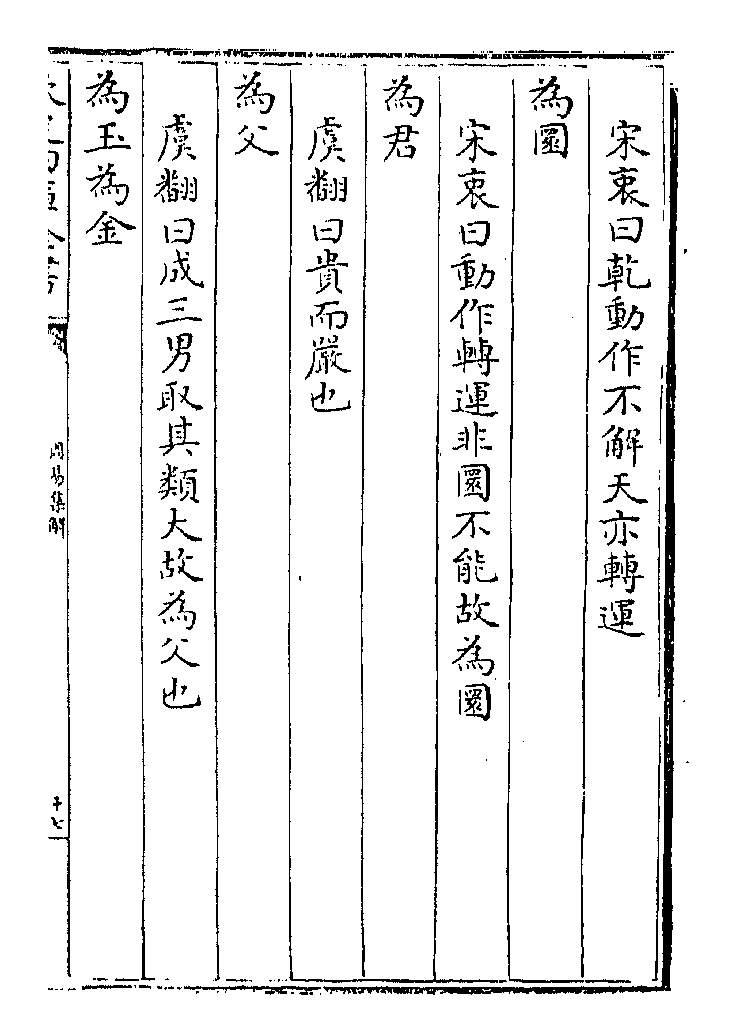 宋衷曰乾動作不解天亦轉運
為圜
宋衷曰動作轉運非圜不能故為圜
為君
虞翻曰貴而嚴也
為父
虞翻曰成三男取其類大故為父也
為玉為金
周易集解
十七